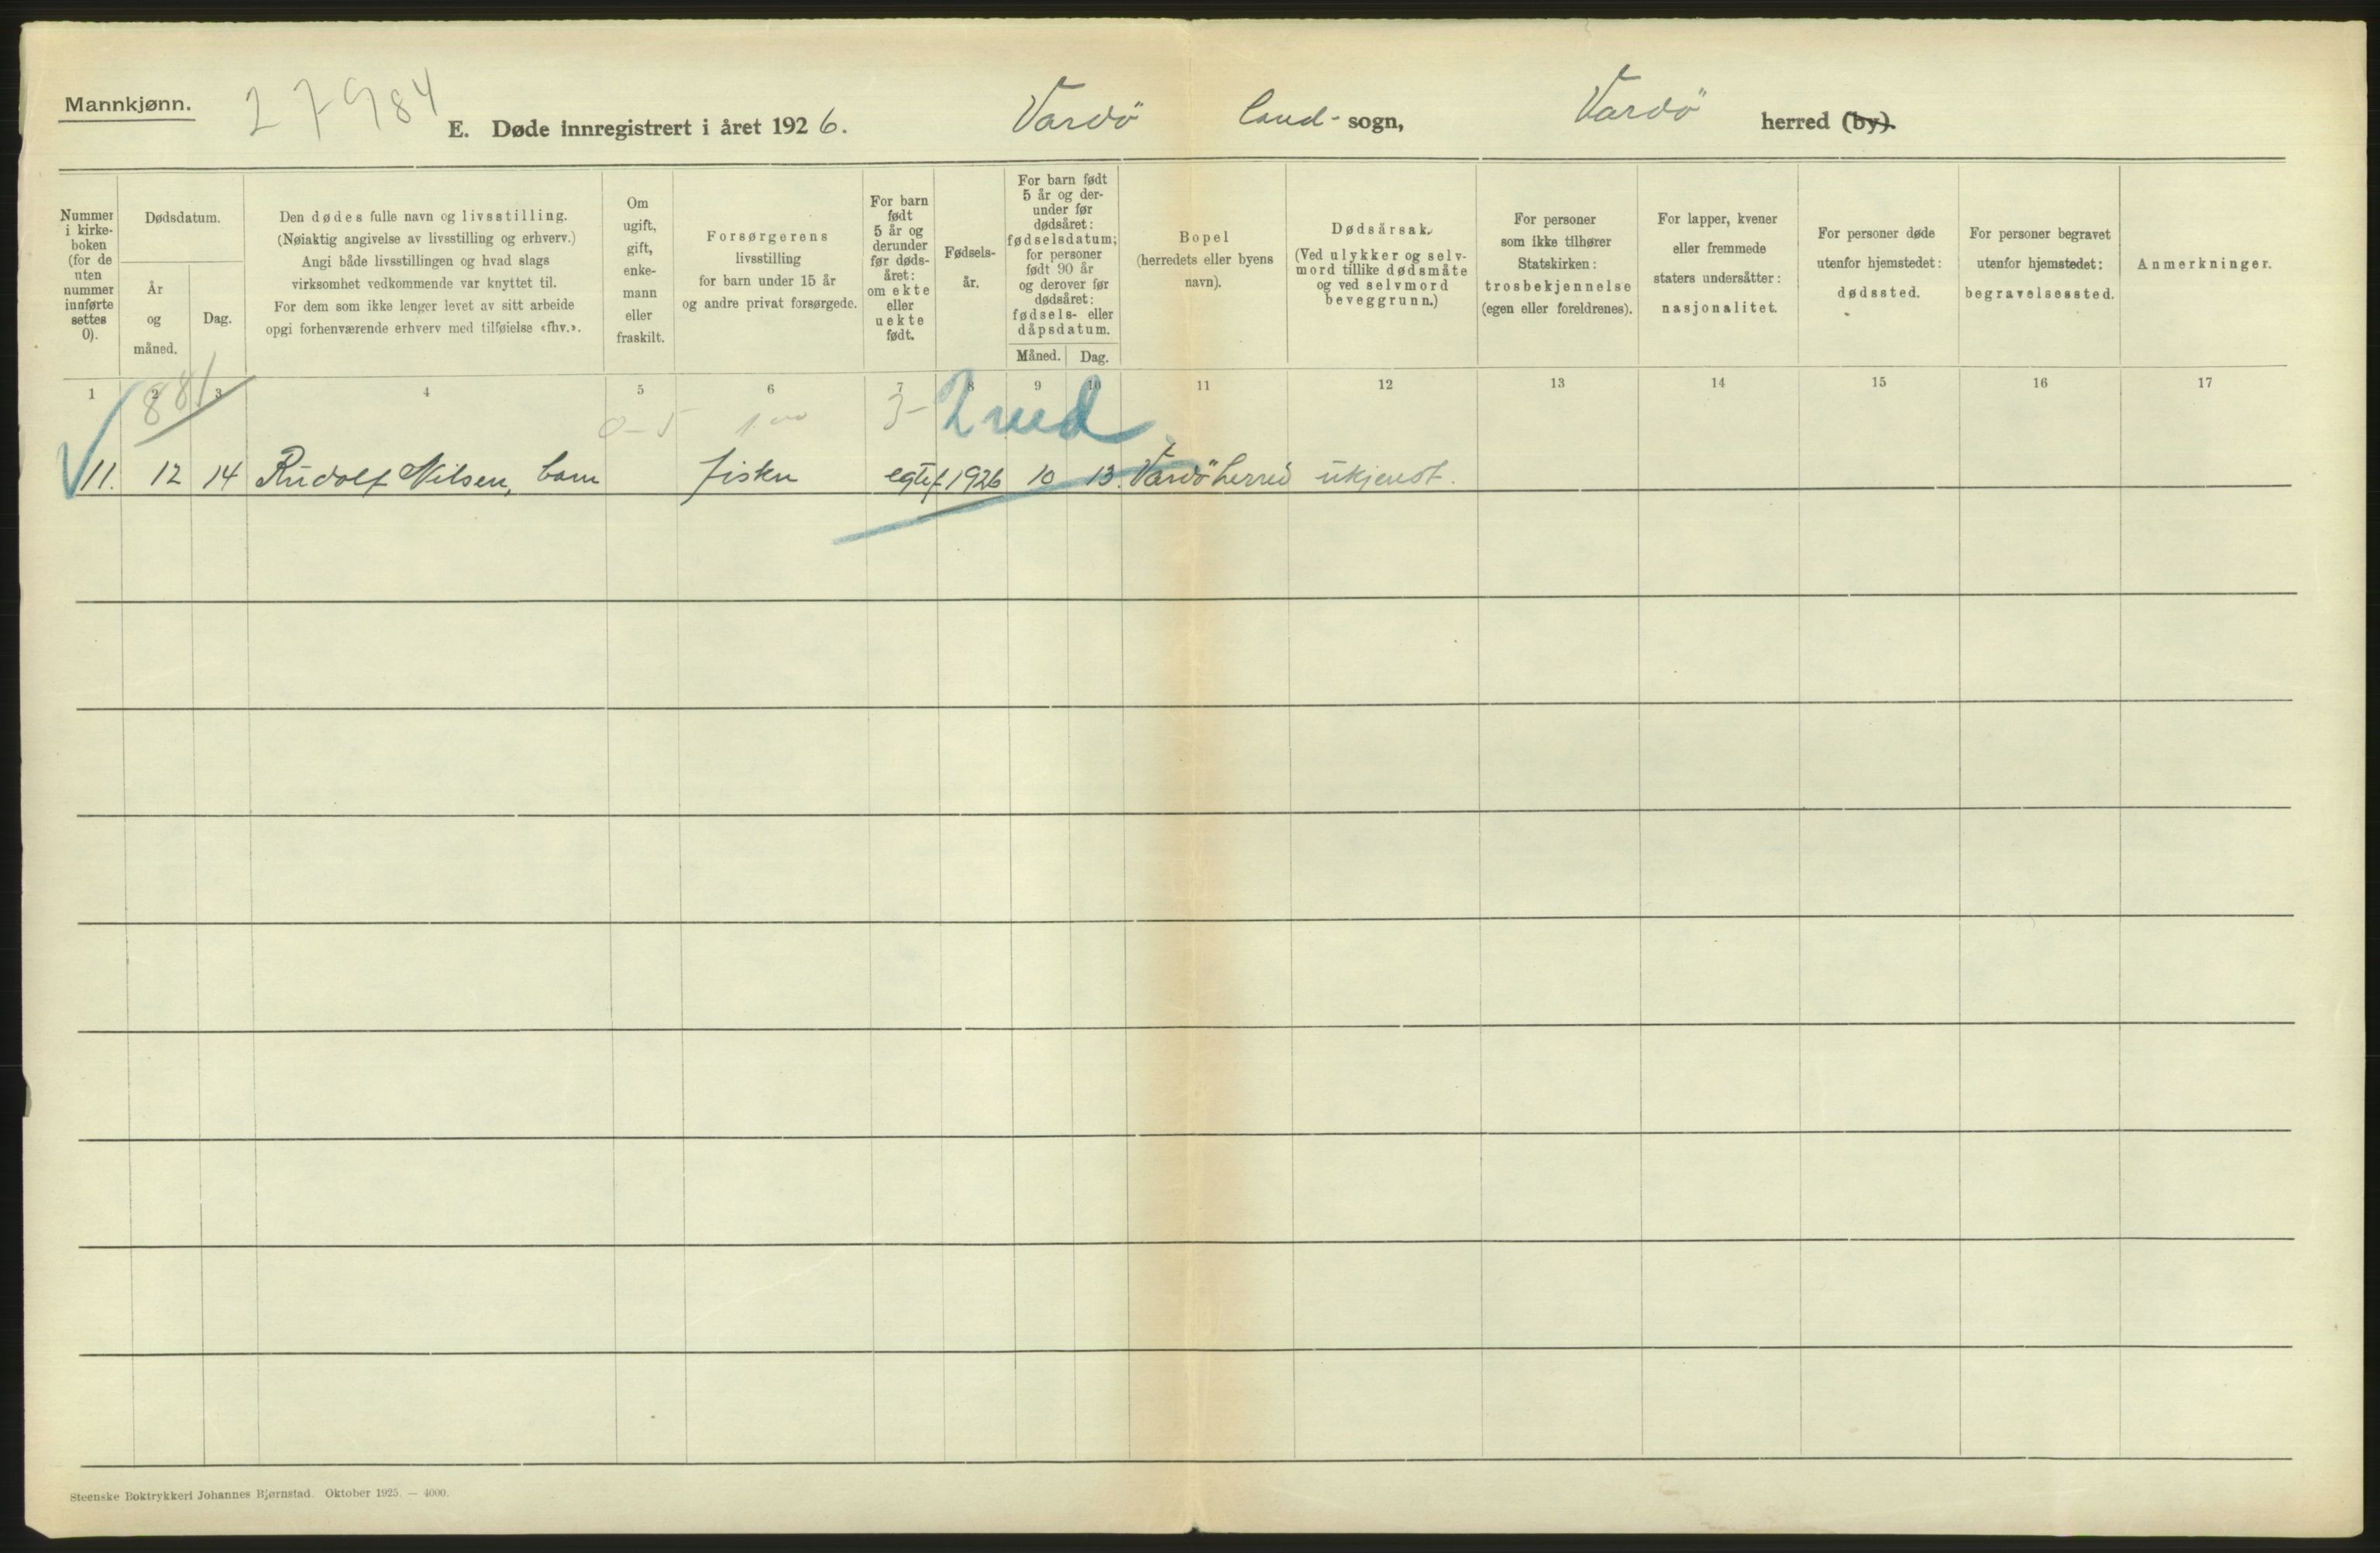 Mannkjønn.
27984
E. Døde innregistrert i året 1926. Vardö land- sogn, Vardö herred (by).
Nummer
i kirke-
boken
(for de
uten
nummer
innførte
settes
0).
Dødsdatum.
År
og
måned.
Dag.
Den dødes fulle navn og livsstilling.
(Nøiaktig angivelse av livsstilling og erhverv.)
Angi både livsstillingen og hvad slags
virksomhet vedkommende var knyttet til.
For dem som ikke lenger levet av sitt arbeide
opgi forhenværende erhverv med tilføielse «fhv.».
Om
ugift,
gift,
enke-
mann
eller
fraskilt.
Forsørgerens
livsstilling
for barn under 15 år
og andre privat forsørgede.
For barn
født
5 år og
derunder
før døds-
året:
om ekte
eller
uekte
født.
Fødsels-
år.
For barn født
5 år og der-
under før
dødsåret:
fødselsdatum;
for personer
født 90 år
og derover før
dødsåret:
fødsels- eller
dåpsdatum.
Måned. Dag.
Bopel
(herredets eller byens
navn).
Dødsårsak.
(Ved ulykker og selv-
mord tillike dødsmåte
og ved selvmord
beveggrunn.)
For personer
som ikke tilhører
Statskirken:
trosbekjennelse
(egen eller foreldrenes).
For lapper, kvener
eller fremmede
staters undersåtter:
nasjonalitet.
For personer døde
utenfor hjemstedet:
dødssted.
For personer begravet
utenfor hjemstedet:
begravelsessted.
Anmerkninger.
1 2 3 4 5 6 7 8 9 10 11 12 13 14 15 16 17
881
0-5 3- 2 md
11. 12 14 Rudolf Nilsen, barn fisker egtef 1926 10 13. Vardö herred ukjendt.
Steenske Boktrykkeri Johannes Bjørnstad. Oktober 1925. — 4000.